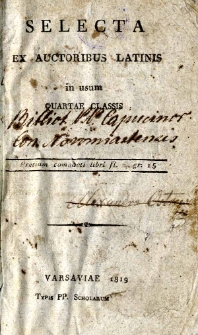 SELECTA
EX AUCTORIBUS LATINIS
in usum
QUARTAE CLASSIS
Biblioth. PP. Capucinor
Conv. Novomiastensis
Pretium compacti libri fl. gr. 15
VARSAVIAE 1819
TYPIS PP. SCHOLARUM